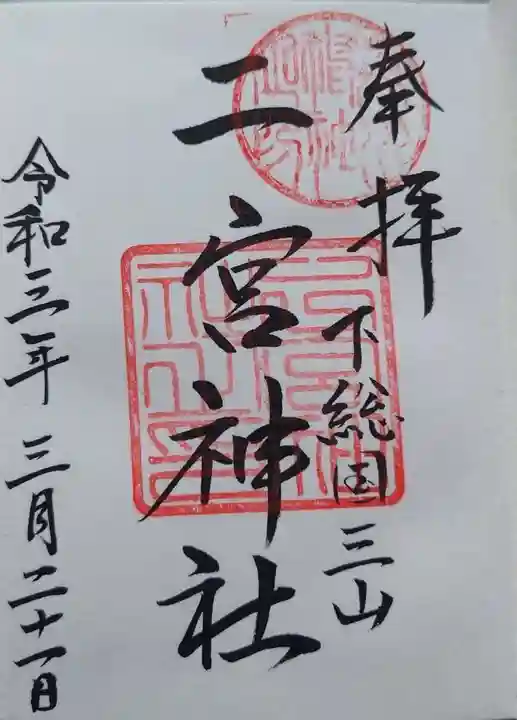 奉拝
下総国三山
二宮神社
令和三年三月二十一日